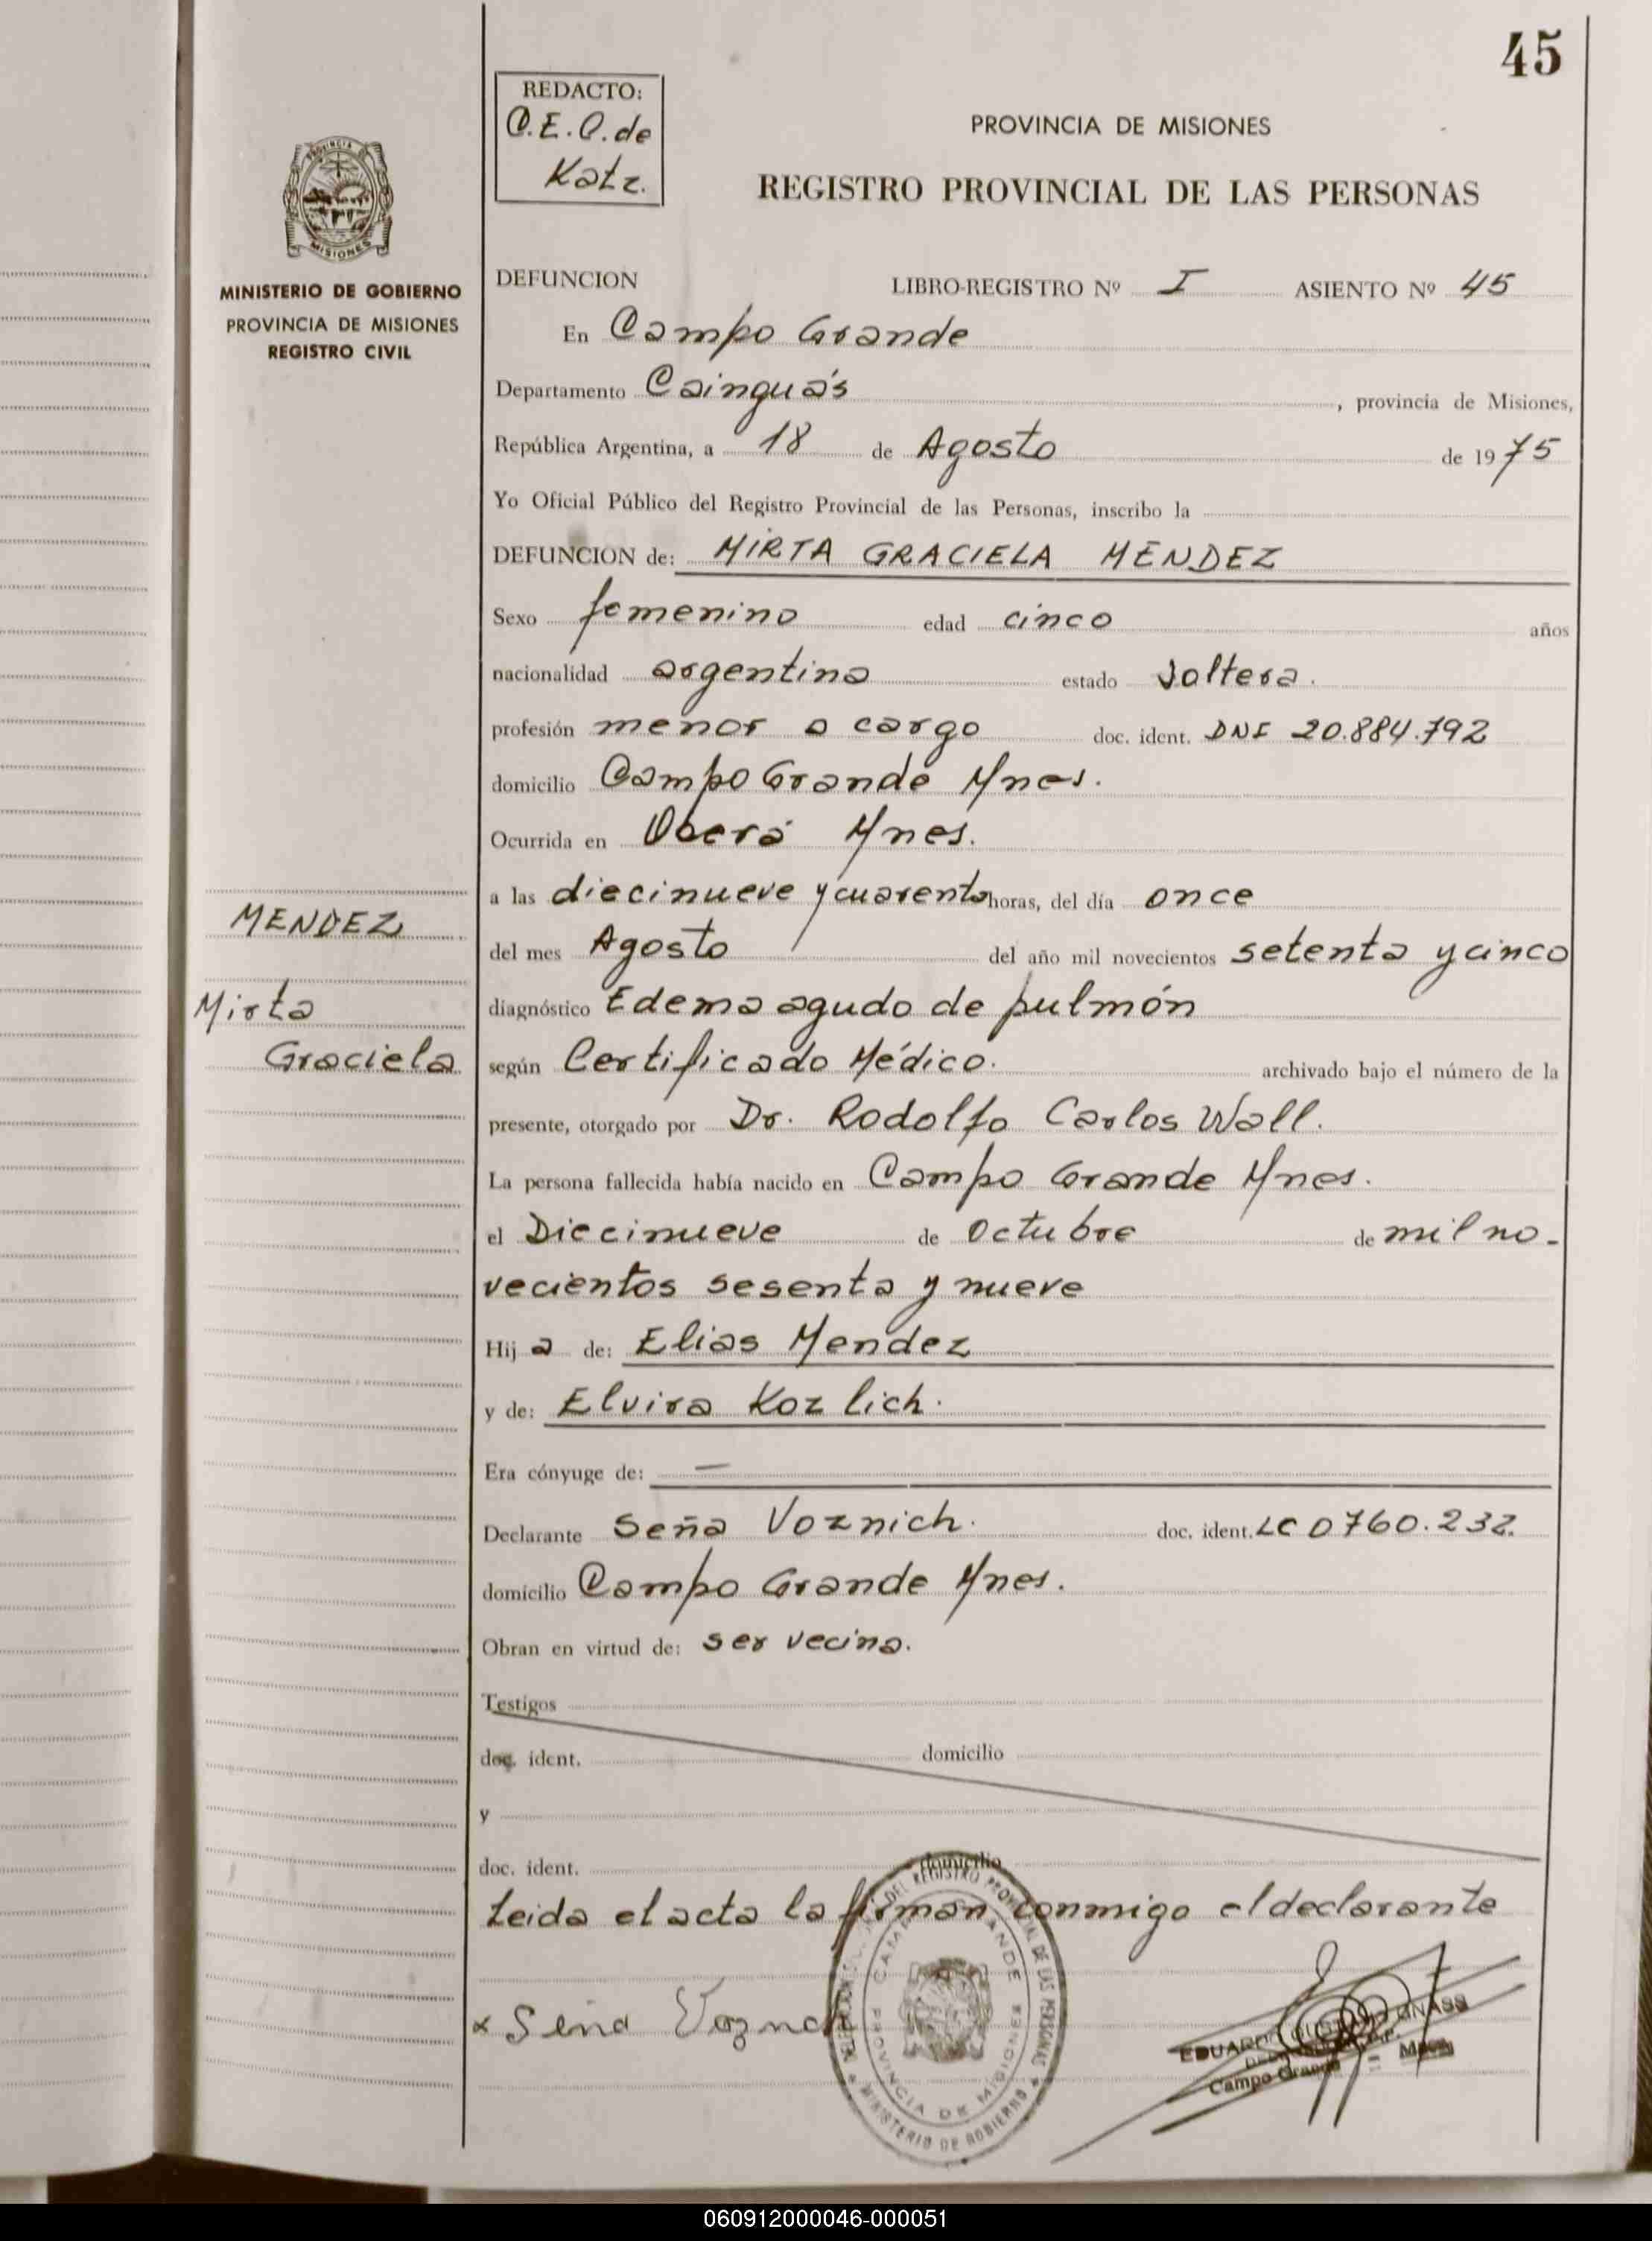 45
REDACTO:
C.E.Q. de
Katz.
PROVINCIA DE MISIONES
REGISTRO PROVINCIAL DE LAS PERSONAS
PROVINCIA
MISIONES
MINISTERIO DE GOBIERNO
PROVINCIA DE MISIONES
REGISTRO CIVIL
DEFUNCION LIBRO-REGISTRO Nº I ASIENTO Nº 45
En Campo Grande
Departamento Cainguás, provincia de Misiones,
República Argentina, a 18 de Agosto de 1975
Yo Oficial Público del Registro Provincial de las Personas, inscribo la
DEFUNCION de: MIRTA GRACIELA MENDEZ
Sexo femenino edad cinco años
nacionalidad argentina estado soltera.
profesión menor a cargo doc. ident. DNI 20.884.792
domicilio Campo Grande Mnes.
Ocurrida en Oberá Mnes.
a las diecinueve y cuarenta horas, del día once
MENDEZ
del mes Agosto del año mil novecientos setenta y cinco
Mirta
diagnóstico Edema agudo de pulmón
Graciela
según Certificado Médico. archivado bajo el número de la
presente, otorgado por Dr. Rodolfo Carlos Wall.
La persona fallecida había nacido en Campo Grande Mnes.
el Diecinueve de Octubre de mil no-
vecientos sesenta y nueve
Hija de: Elias Mendez
y de: Elvira Kozlich.
Era cónyuge de: —
Declarante Seña Voznich. doc. ident. LC 0760.232.
domicilio Campo Grande Mnes.
Obran en virtud de: ser vecina.
Testigos
doc. ident. domicilio
y
doc. ident. domicilio
Leida el acta la firman conmigo el declarante
x Seña
DEL REGISTRO PROVINCIAL DE LAS PERSONAS
CAMPO GRANDE
PROVINCIA DE MISIONES
MINISTERIO DE GOBIERNO
EDUARDO GUSTAVO
Campo Grande - Mnes.
060912000046-000051